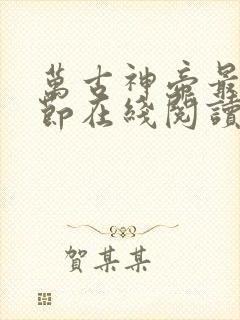 萬古神帝最
節在綫閱讀
賀某某